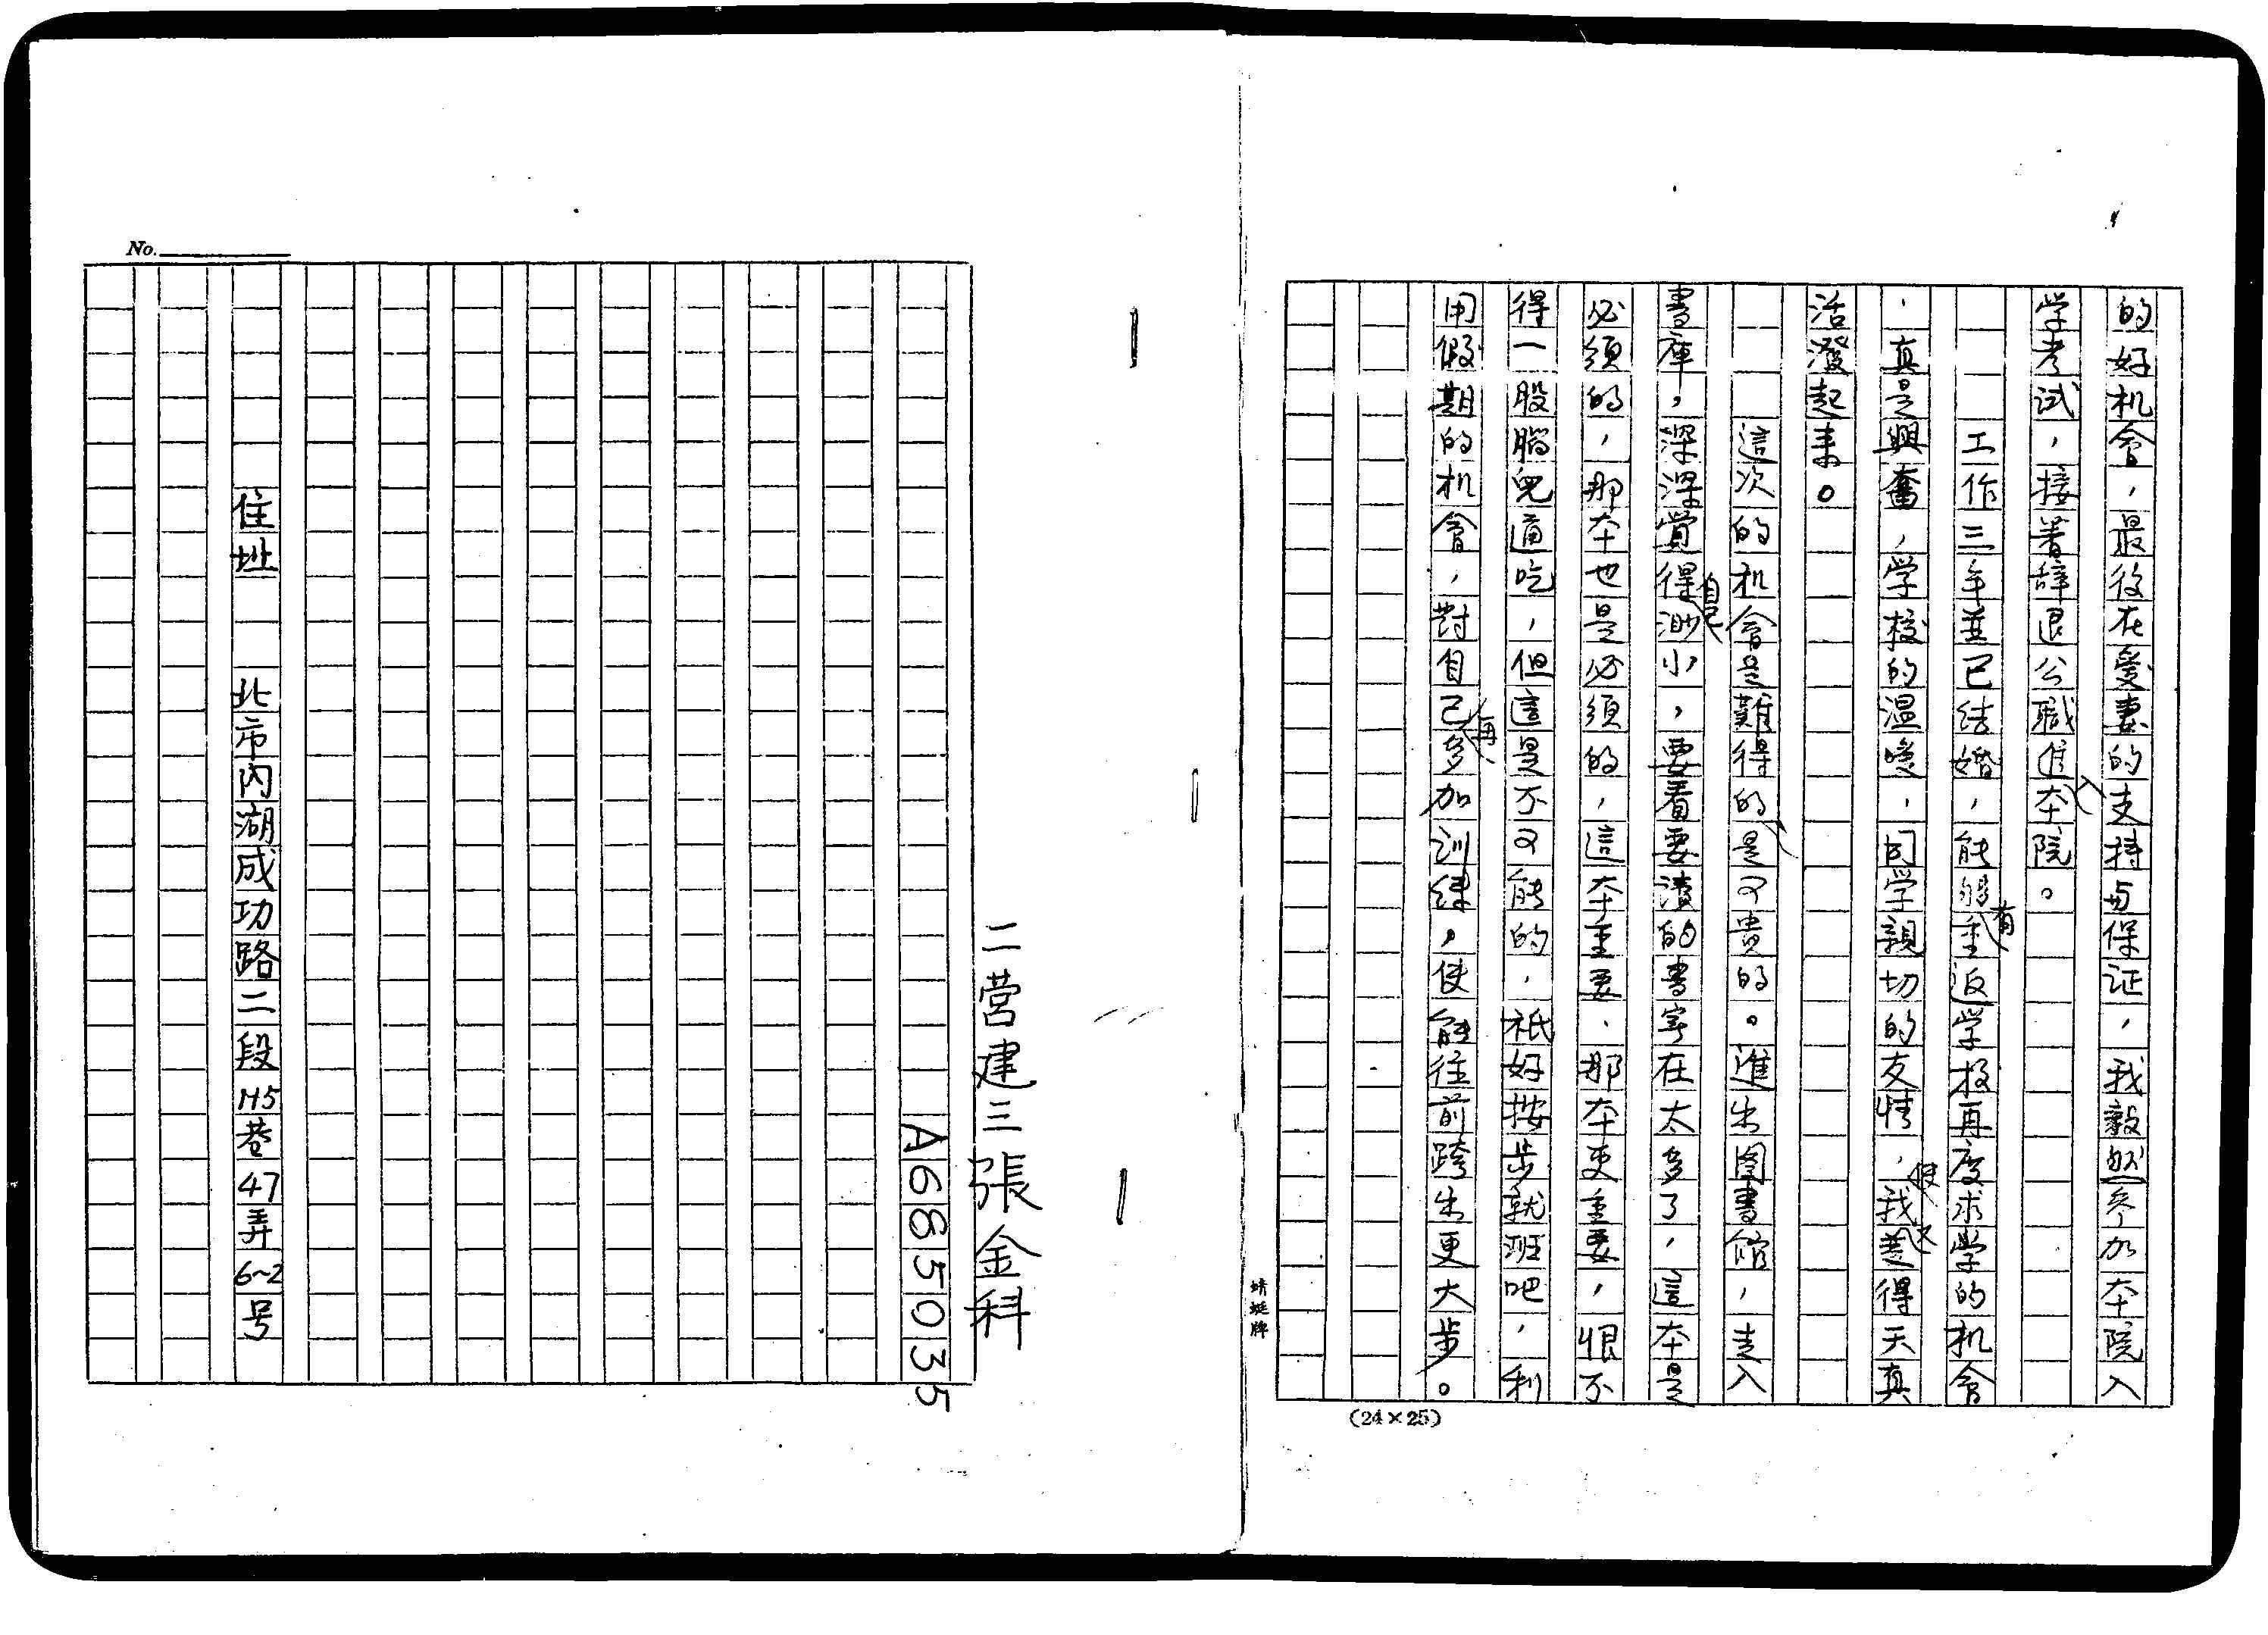 的好机會，最後在爱妻的支持与保证，我毅然参加本院入
学考试，接着辞退公職進入本院。
工作三年並已结婚，能够有重返学校再度求学的机會
，真是興奮，学校的温暖，同学親切的友情，使我变得天真
活潑起来。
這次的机會是難得的是可貴的。進出图書館，走入
書庫，深深覺得自己渺小，要看要讀的書实在太多了，這本是
必須的，那本也是必須的，這本重要，那本更重要，恨不
得一股腦兒逼吃，但這是不可能的，祇好按步就班吧，利
用假期的机會，對自己再多加訓練，使能往前跨出更大步。
蜻蜓牌
(24×25)
二营建三張金科
A6850035
住址 北市内湖成功路二段45巷47弄6~2号
No.